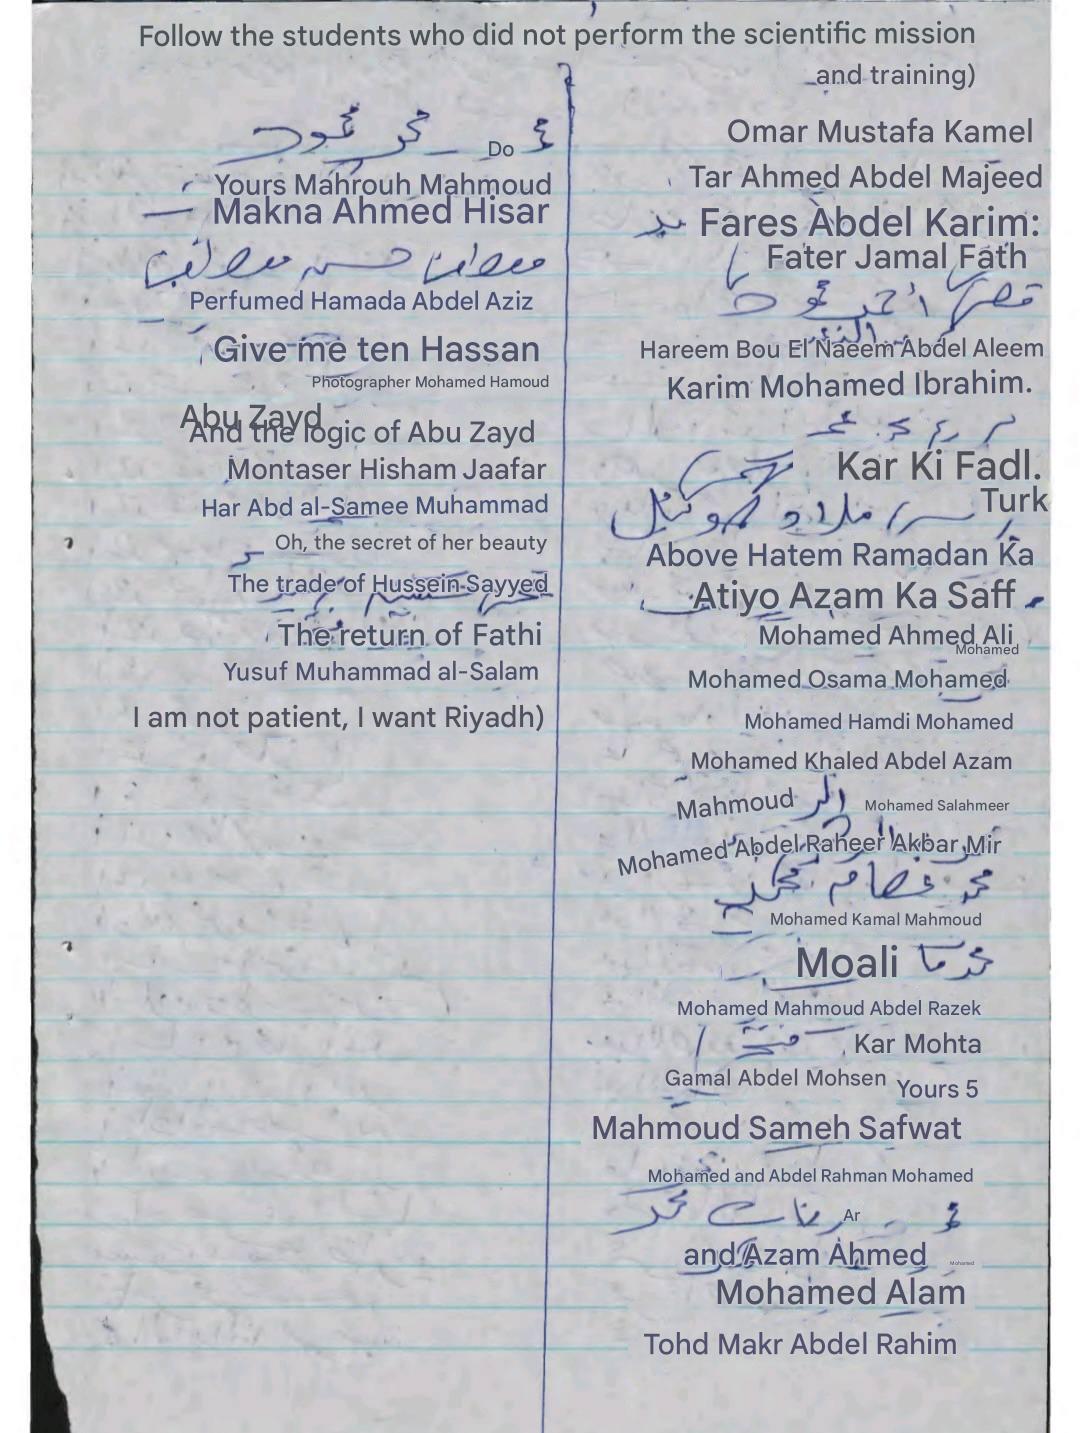 Follow the students who did not perform the scientific mission
and training)
Omar Mustafa Kamel
Tar Ahmed Abdel Majeed
Fares Abdel Karim:
Fater Jamal Fath
Hareem Bou El Naeem Abdel Aleem
Karim Mohamed Ibrahim.
Kar Ki Fadl.
Turk
Above Hatem Ramadan Ka
Atiyo Azam Ka Saff
Mohamed Ahmed Ali
Mohamed
Mohamed Osama Mohamed
Mohamed Hamdi Mohamed
Mohamed Khaled Abdel Azam
Mahmoud Mohamed Salahmeer
Mohamed Abdel Raheer Akbar Mir
محمد عصام محمد
Mohamed Kamal Mahmoud
Moali
Mohamed Mahmoud Abdel Razek
Kar Mohta
Gamal Abdel Mohsen Yours 5
Mahmoud Sameh Safwat
Mohamed and Abdel Rahman Mohamed
Ar
and Azam Ahmed
Mohamed
Mohamed Alam
Tohd Makr Abdel Rahim
Do
Yours Mahrouh Mahmoud
Makna Ahmed Hisar
Perfumed Hamada Abdel Aziz
Give me ten Hassan
Photographer Mohamed Hamoud
Abu Zayd
And the logic of Abu Zayd
Montaser Hisham Jaafar
Har Abd al-Samee Muhammad
Oh, the secret of her beauty
The trade of Hussein Sayyed
The return of Fathi
Yusuf Muhammad al-Salam
I am not patient, I want Riyadh)